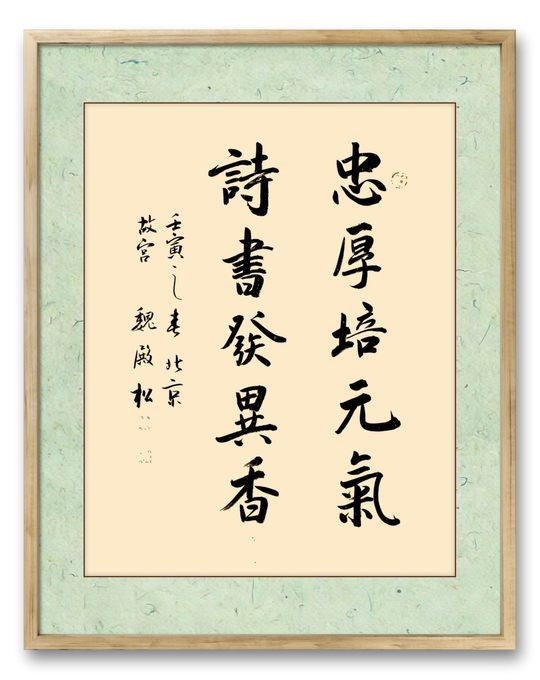 忠厚培元氣
詩書發異香
壬寅之春北京
故宮 魏殿松